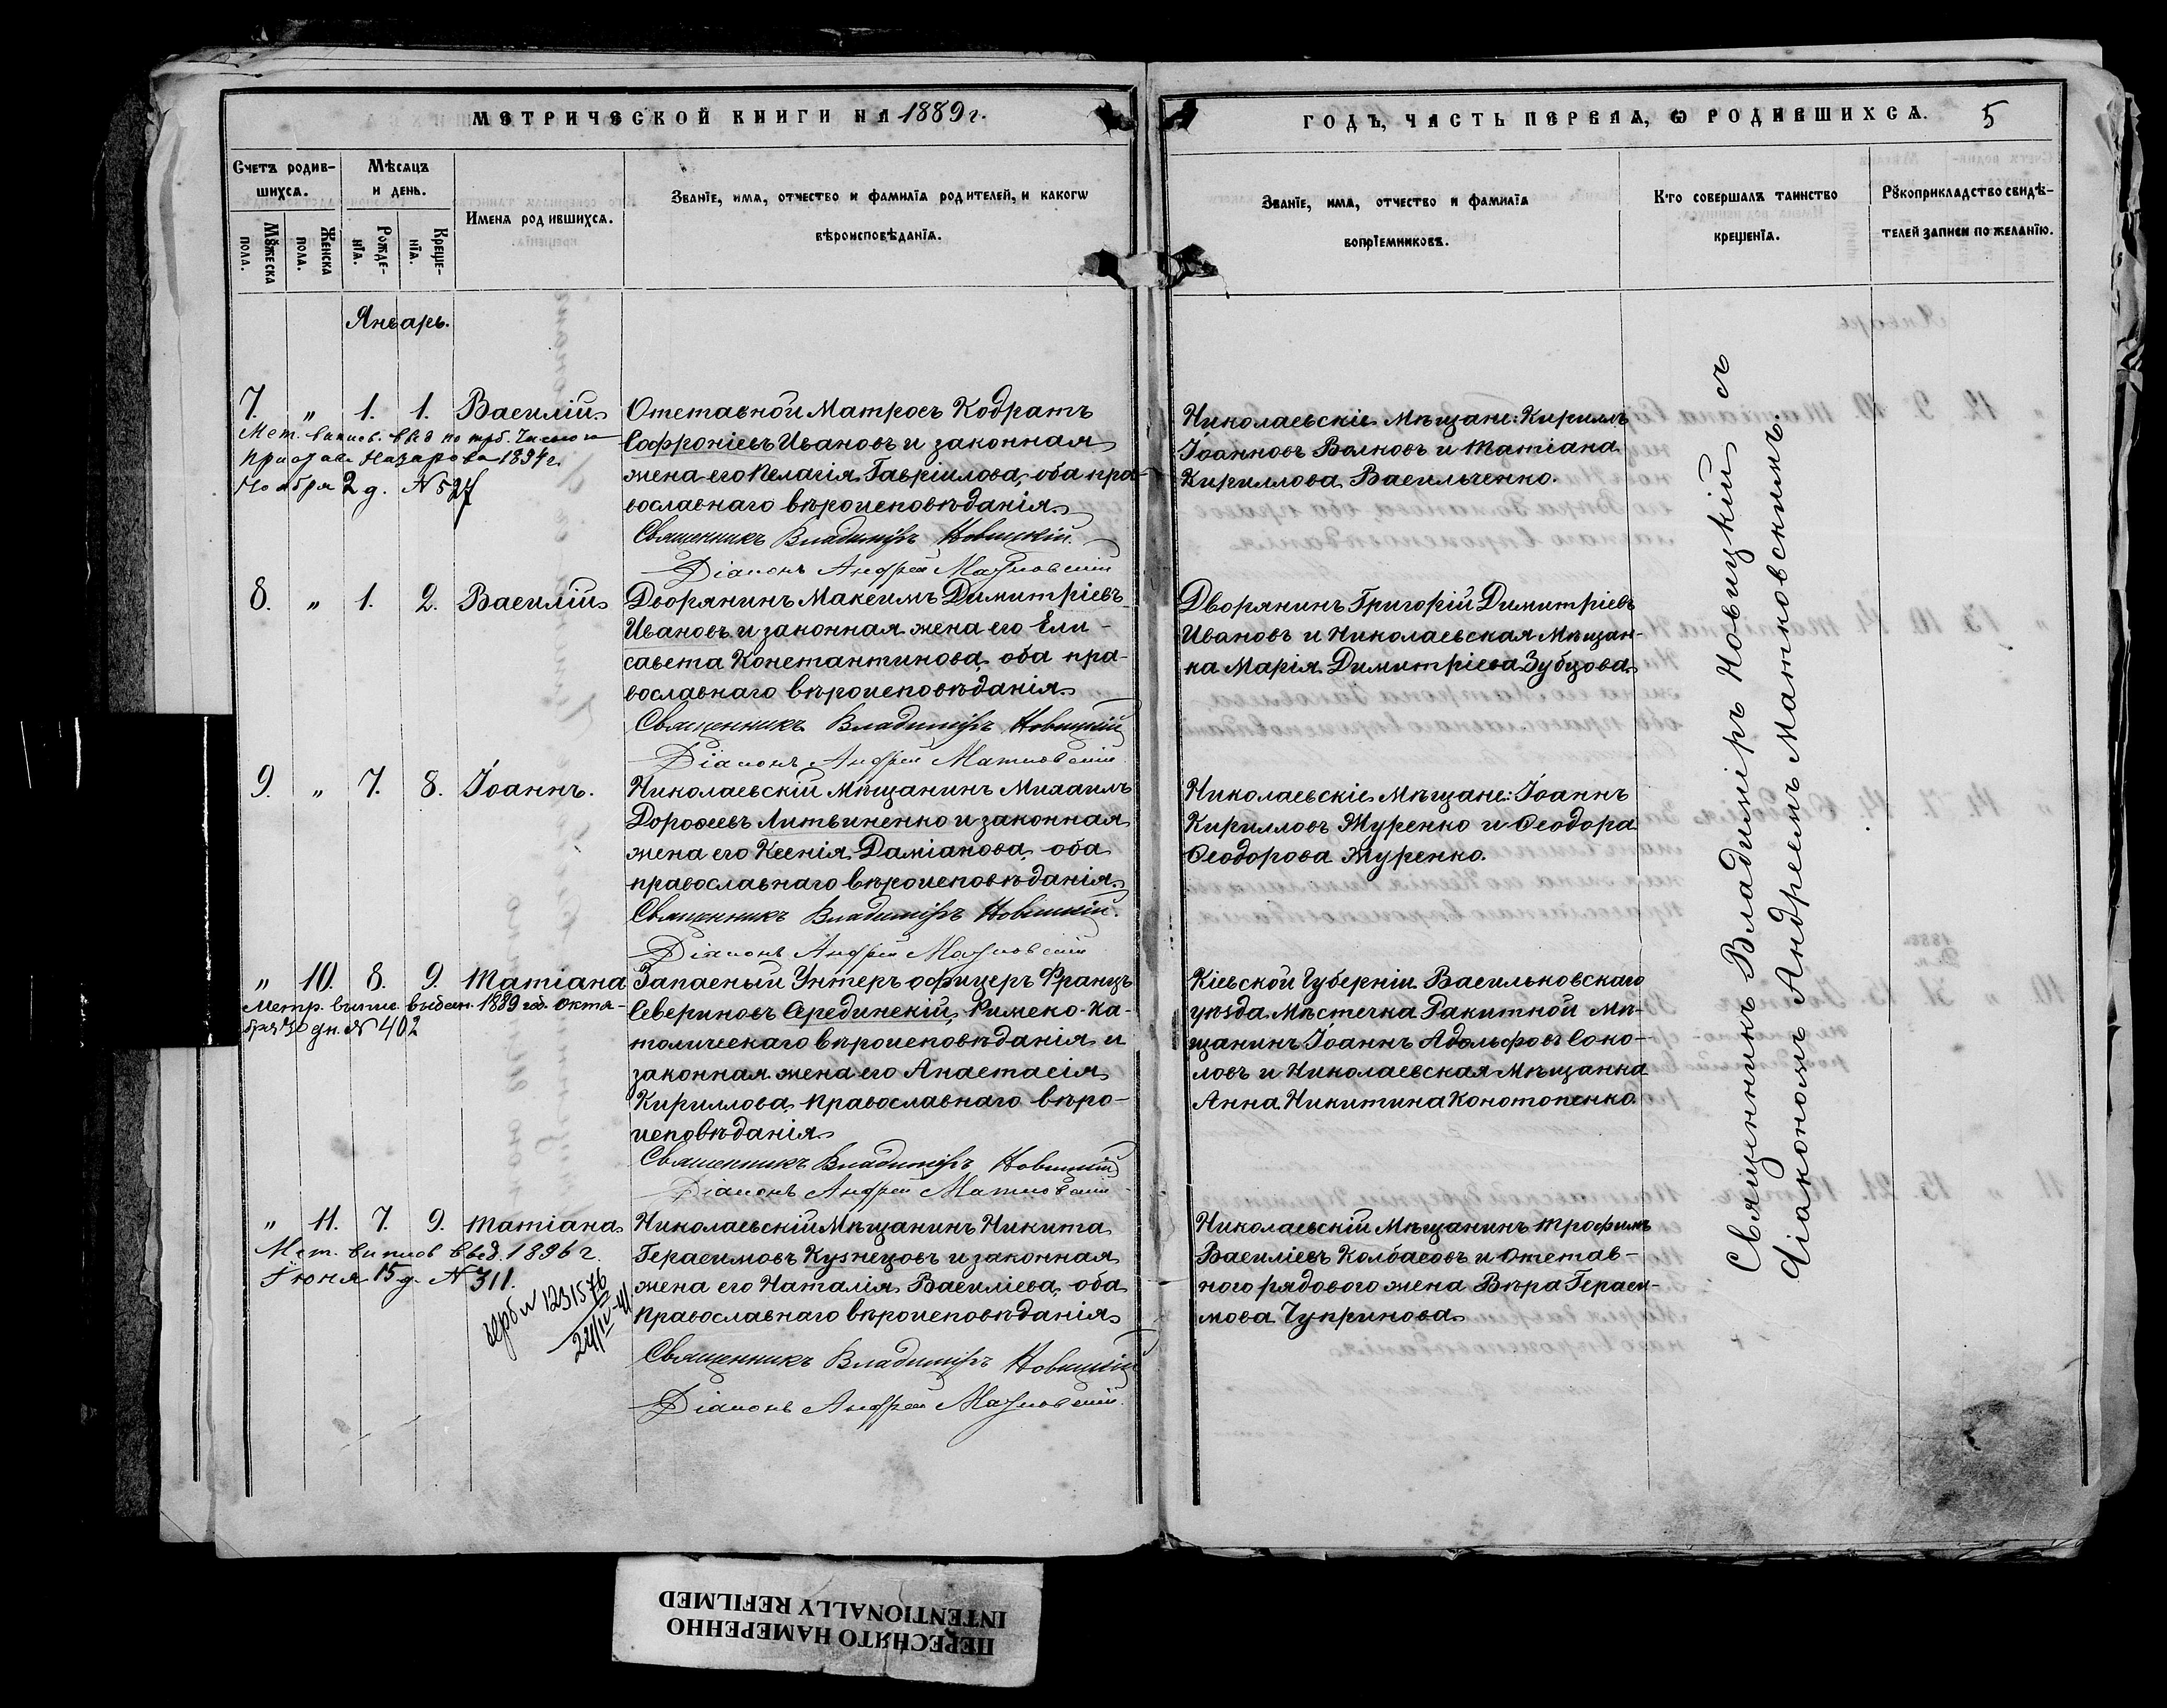 МЕТРИЧЕСКОЙ КНИГИ НА 1889 г.
Счетъ родив-
шихся.
Мѣсяцъ
и день.
Имена родившихся.
Званїе, имя, отчество и фамилїа родителей, и какогѡ
вѣроисповѣданїя.
Мꙋжеска
пола.
Женска
пола.
Рожде-
нїя.
Креще-
нїя.
Январь.
7. " 1. 1. Василій
Мет. выпись
Пристава Назарова 1894 г.
Ноября 2 д. № 527
Отставной Матросъ Кодратъ
Софроніевъ Ивановъ и законная
жена его Пелагія Гавріилова, оба пра-
вославнаго вѣроисповѣданія
Священникъ Владиміръ Новицкій.
Діаконъ Андрей Матковскій
8. " 1. 2. Василій
Дворянинъ Максимъ Димитріевъ
Ивановъ и законная жена его Ели-
савета Константинова, оба пра-
вославнаго вѣроисповѣданія
Священникъ Владиміръ Новицкій
Діаконъ Андрей Матковскій
9. " 7. 8. Іоаннъ.
Николаевскій Мѣщанинъ Михаилъ
Дорофеевъ Литвиненко и законная
жена его Ксенія Даміанова, оба
православнаго вѣроисповѣданія
Священникъ Владиміръ Новицкій.
Діаконъ Андрей Матковскій
" 10. 8. 9. Татіана
Метр. выпис. выдан. 1889 год. октя-
бря 30 дн. № 402
Запасный Унтеръ офицеръ Францъ
Севериновъ Серединскій, Римско-Ка-
толическаго вѣроисповѣданія и
законная жена его Анастасія
Кириллова, православнаго вѣро-
исповѣданія
Священникъ Владиміръ Новицкій
Діаконъ Андрей Матковскій
" 11. 7. 9. Татіана
Мет. выпись выд. 1896 г.
Іюня 15 д. № 311.
№ 1231576
24/IV-41
Николаевскій Мѣщанинъ Никита
Герасимовъ Кузнецовъ и законная
жена его Наталія Василіева, оба
православнаго вѣроисповѣданія
Священникъ Владиміръ Новицкій
Діаконъ Андрей Матковскій.
ГОДЪ, ЧАСТЬ ПЕРВАЯ, Ѡ РОДИВШИХСЯ. 5
Званїе, имя, отчество и фамилїа
воспрїемниковъ.
Кто совершалъ таинство
крещенїя.
Рꙋкоприкладство свидѣ-
телей записи по желанїю.
Николаевскіе Мѣщане: Кириллъ
Іоанновъ Волковъ и Татіана
Кириллова Васильченко.
Дворянинъ Григорій Димитріевъ
Ивановъ и Николаевская Мѣщан-
ка Марія Димитріева Зубцова
Николаевскіе Мѣщане: Іоаннъ
Кирилловъ Журенко и Ѳеодора
Ѳеодорова Журенко.
Кіевской Губерніи Васильковскаго
уѣзда Мѣстечка Ракитной Мѣ-
щанинъ Іоаннъ Адольфовъ Соко-
ловъ и Николаевская Мѣщанка
Анна Никитина Конотопенко
Николаевскій Мѣщанинъ Трофимъ
Василіевъ Колбасовъ и Отстав-
ного рядового жена Вѣра Гераси-
мова Чупринова
Священникъ Владиміръ Новицкій съ
діакономъ Андреемъ Матковскимъ.
ПЕРЕСНЯТО НАМЕРЕННО
INTENTIONALLY REFILMED